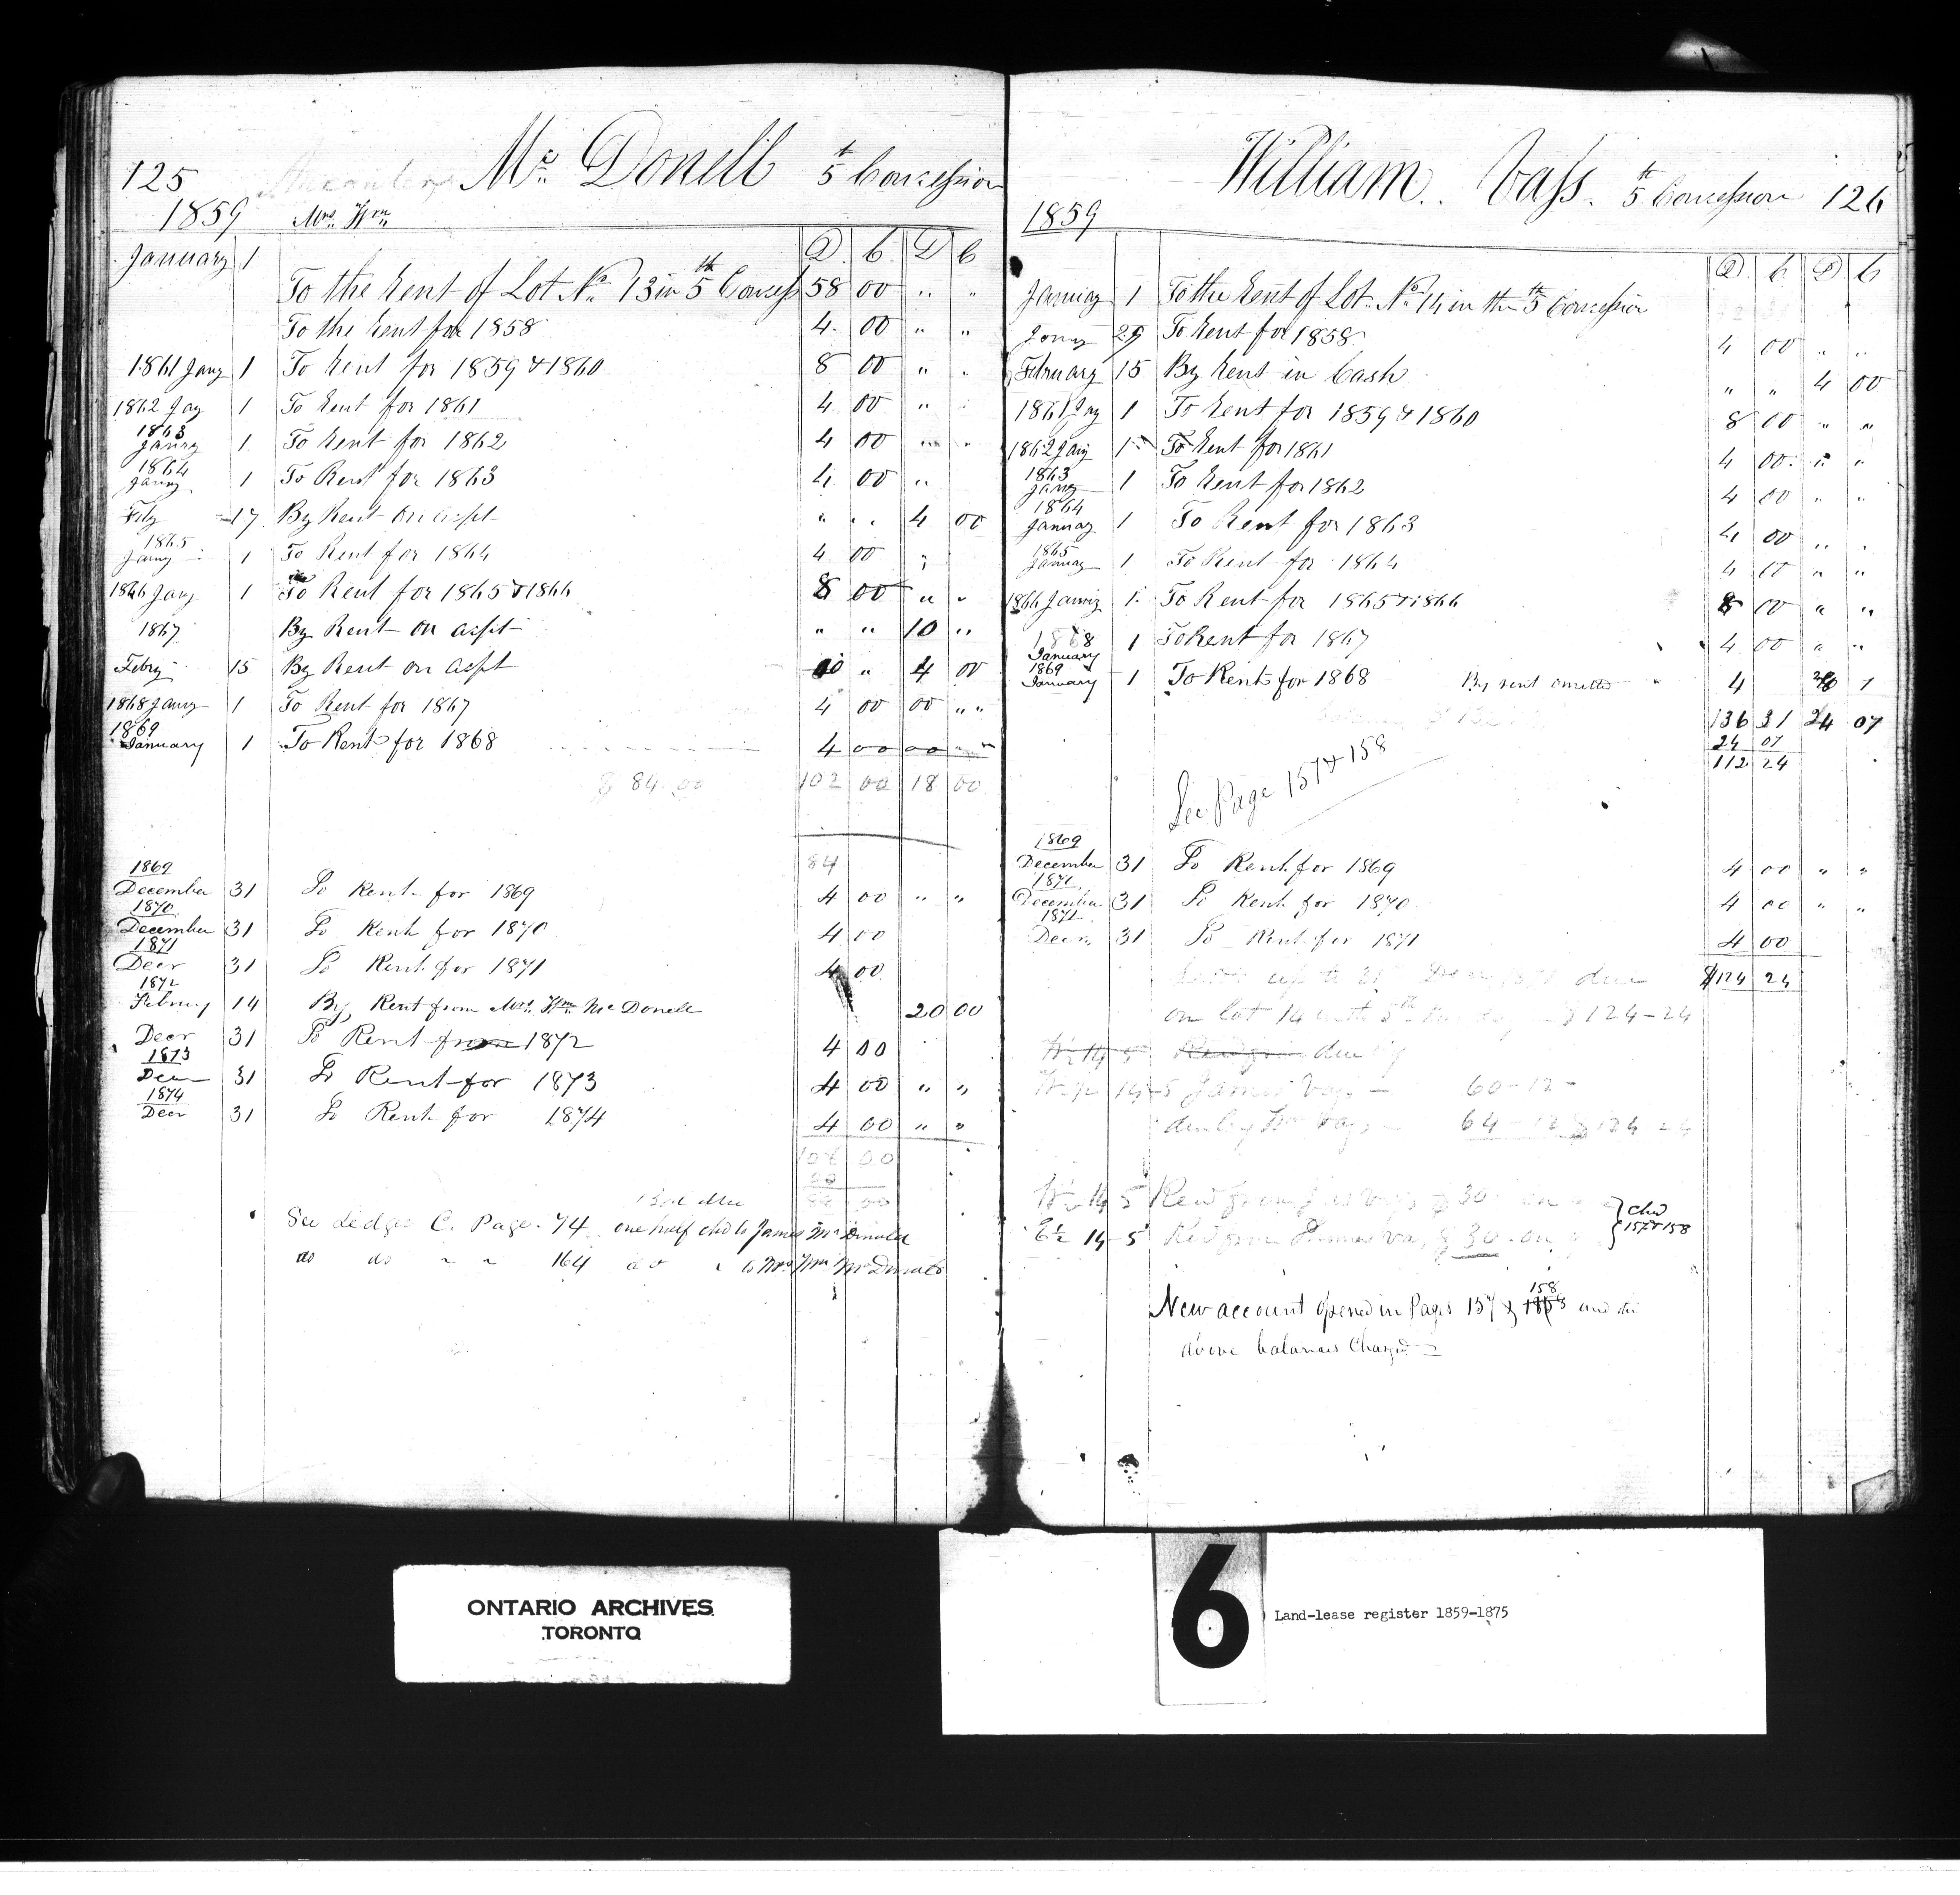 125 Mc Donell 5th Concession
1859 Mrs. Wm
D. C. D C
January 1
To the Rent of Lot No 13 in 5th Concess 58 00 " "
To the Rent for 1858 4. 00 " "
1861 Jany 1 To Rent for 1859 & 1860 8 00 " "
1862 Jay 1 To Rent for 1861 4 00 "
1863
Janry 1 To Rent for 1862 4 00 " "
1864
Janry 1 To Rent for 1863 4 00 "
Feby 17 By Rent on acpt " " 4 00
1865
Janry 1 To Rent for 1864 4 00 "
1866 Jany 1 To Rent for 1865 & 1866 8 00 " "
1867 By Rent on acpt " " 10 "
Febry 15 By Rent on acpt " 4 00
1868 Janry 1 To Rent for 1867 4 00 00 " "
1869
January 1 To Rent for 1868 4 00 00 "
$ 84.00 102 00 18 00
84
1869
December 31 To Rent for 1869 4 00 " "
1870
December 31 To Rent for 1870 4 00
1871
Decr 31 To Rent for 1871 4 00
1872
Februy 14 By Rent from Mrs. Wm. Mc Donell 20 00
Decr 31 To Rent from 1872 4 00
1873
Decr 31 To Rent for 1873 4 00 " "
1874
Decr 31 To Rent for 1874 4 00 " "
00
See Ledger C. Page. 74 one half chd to James McDonald
do do " " 164 do " to Mrs Wm McDonald
William Vass. 5th Concession 126
1859
D C D C
Janiay 1 To the Rent of Lot No 14 in the 5th Concession
Jany 29 To Rent for 1858 4 00 " "
February 15 By Rent in Cash " " 4 00
1861 Jay 1 To Rent for 1859 & 1860 8 00 " "
1862 Jany 1 To Rent for 1861 4 00 " "
1863
Jany 1 To Rent for 1862 4 00 " "
1864
Januay 1 To Rent for 1863 4 00 " "
1865
Januay 1 To Rent for 1864 4 00 " "
1866 Janry 1 To Rent for 1865 & 1866 8 00 " "
1868
January 1 To Rent for 1867 4 00 " "
1869
January 1 To Rent for 1868 By rent omitted 4 7
136 31 24 07
24 07
112 24
See Page 157 & 158
1869
December 31 To Rent for 1869 4 00 " "
1871
December 31 To Rent for 1870 4 00 " "
1871
Decr 31 To Rent for 1871 4 00
up to 31 due $124 24
on lot 14 5th $124-24
due by
W 1/2 14-5 James Vass 60-12-
due by Wm Vass 64-12 $124 24
W 1/2 14 5 from $30 chd
E 1/2 14-5 $30 157 & 158
New account opened in Pages 157 & 158 and the
above balances Charged
ONTARIO ARCHIVES
TORONTO
6
Land-lease register 1859-1875